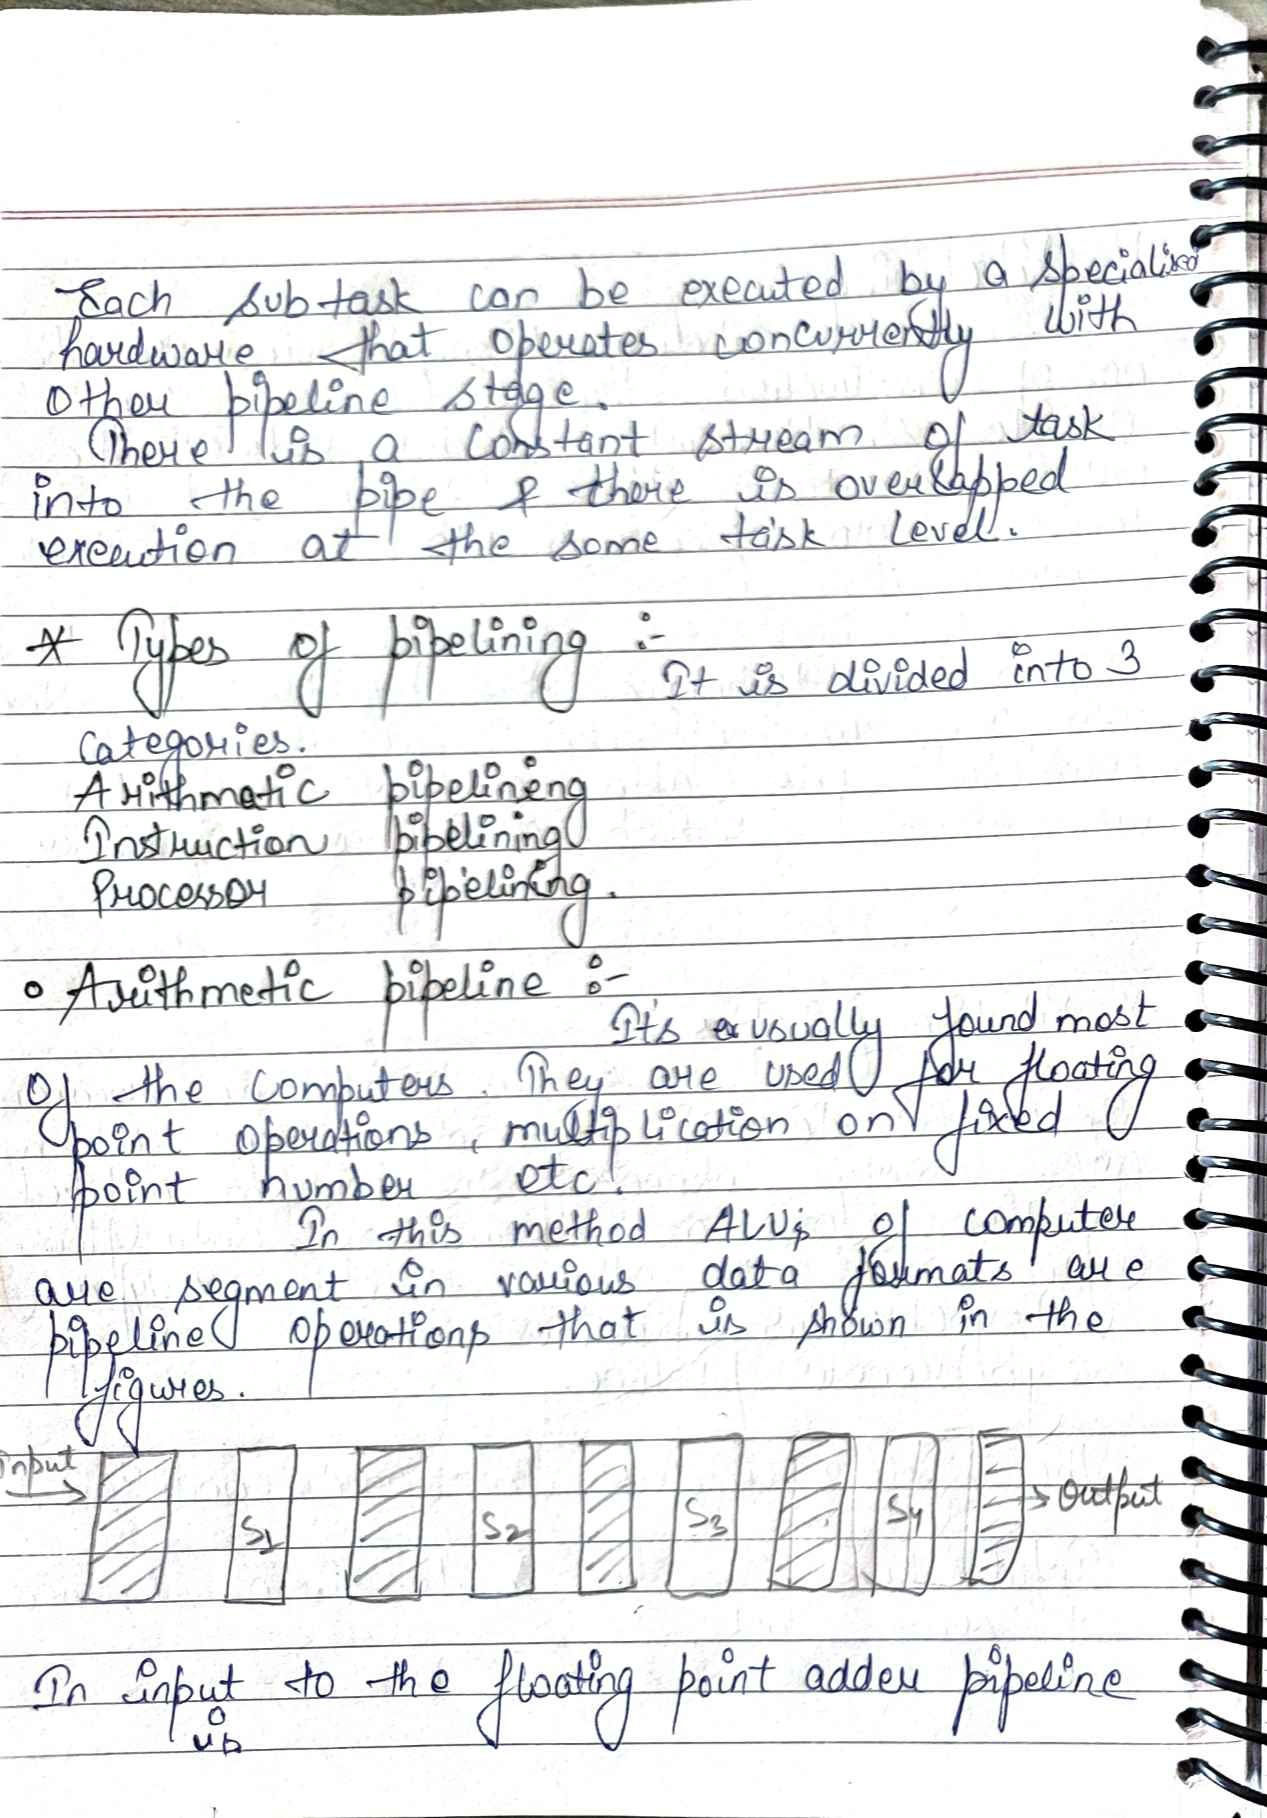 Each subtask can be executed by a specialised
hardware that operates concurrently with
Other pipeline stage.
There is a constant stream of task
into the pipe & there is overlapped
execution at the some task level.
* Types of pipelining :-
It is divided into 3
Categories.
Arithmatic pipelineng
Instruction pipelining
Processor pipelining.
o Arithmetic pipeline :-
It's usually found most
Of the Computers. They are used for floating
point operations, multiplication on fixed
point number etc.
In this method ALUs of computer
are segment in various data formats are
pipeline operations that is shown in the
figures.
input
S1 S2 S3 S4
Output
In input to the floating point adder pipeline
is